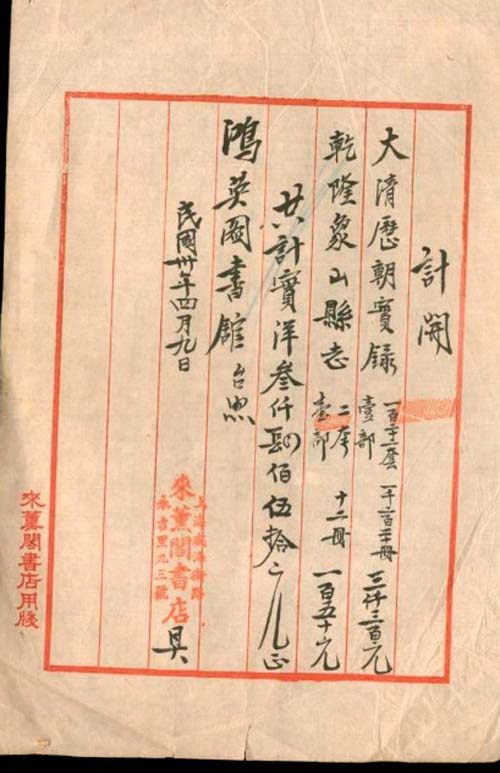 計開
大清歷朝實錄 壹部 一百二十二套 一千二百二十冊 三仟三百元
乾隆象山縣志 壹部 二套 十二冊 一百五十元
共計實洋叁仟肆佰伍拾元正
鴻英圖書館台照
民國卅年四月九日
上海威海衛路
來薰閣書店 具
永吉里九三號
來薰閣書店用牋